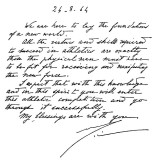 24.8.64
We are here to lay the foundation
of a new world.
All the virtues and skill required
to succeed in athletics are exactly
those the physical man must have
to be fit for receiving and manifesting
the new force.
I expect that with this knowledge
and in this spirit you will enter
this athletic competition and go
through it successfully.
My blessings are with you.